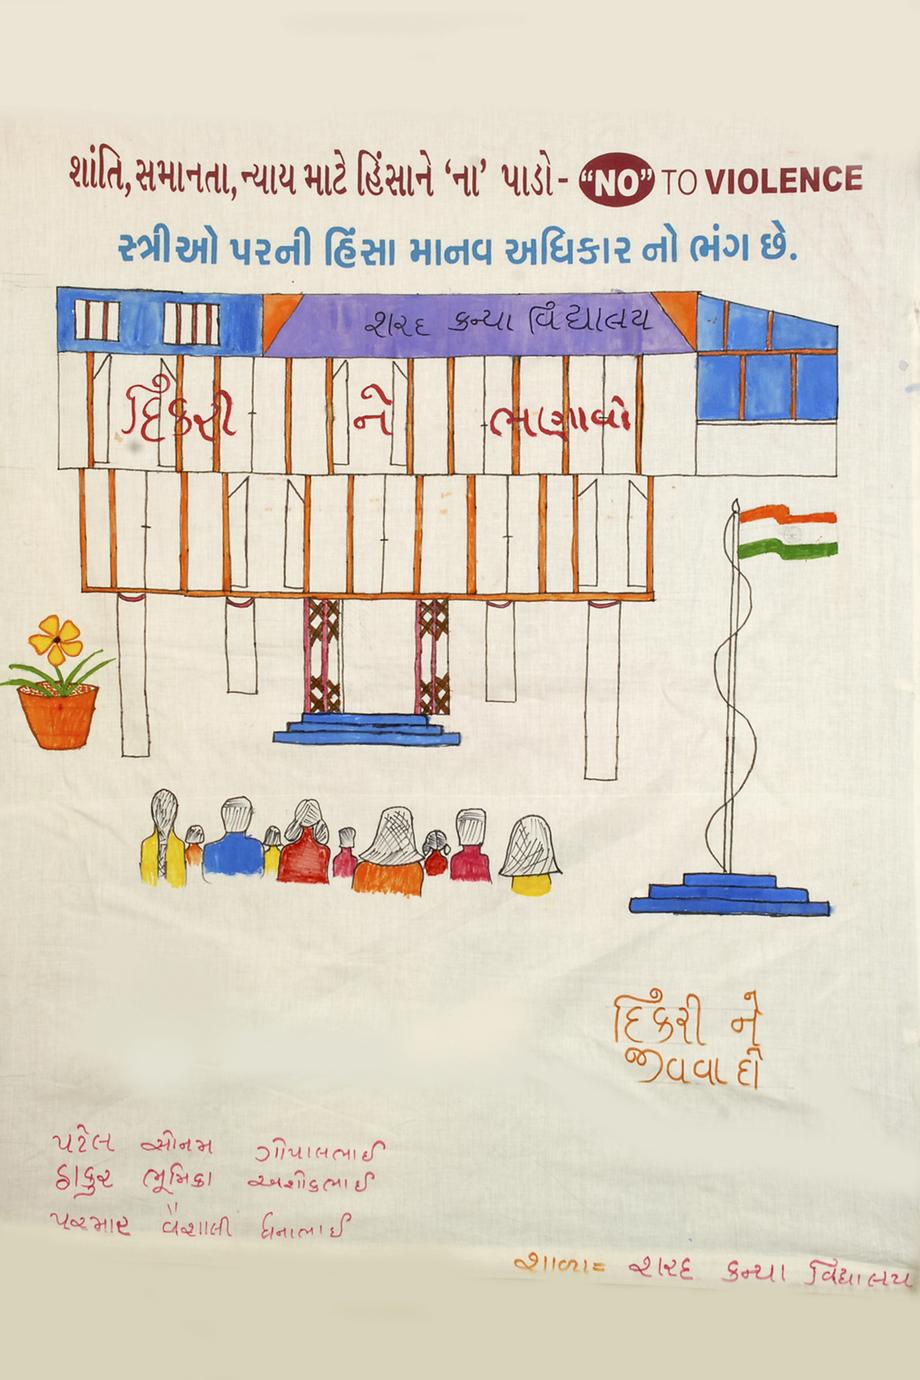 શાંતિ, સમાનતા, ન્યાય માટે હિંસાને ‘ના’ પાડો- “NO” TO VIOLENCE
સ્ત્રીઓ પરની હિંસા માનવ અધિકાર નો ભંગ છે.
શરદ કન્યા વિદ્યાલય
દિકરી ને ભણાવો
દિકરી ને
જીવવા દો
પટેલ સોનમ ગોપાલભાઈ
ઠાકુર ભૂમિકા અશોકભાઈ
પરમાર વૈશાલી ધનાભાઈ
શાળા= શરદ કન્યા વિદ્યાલય